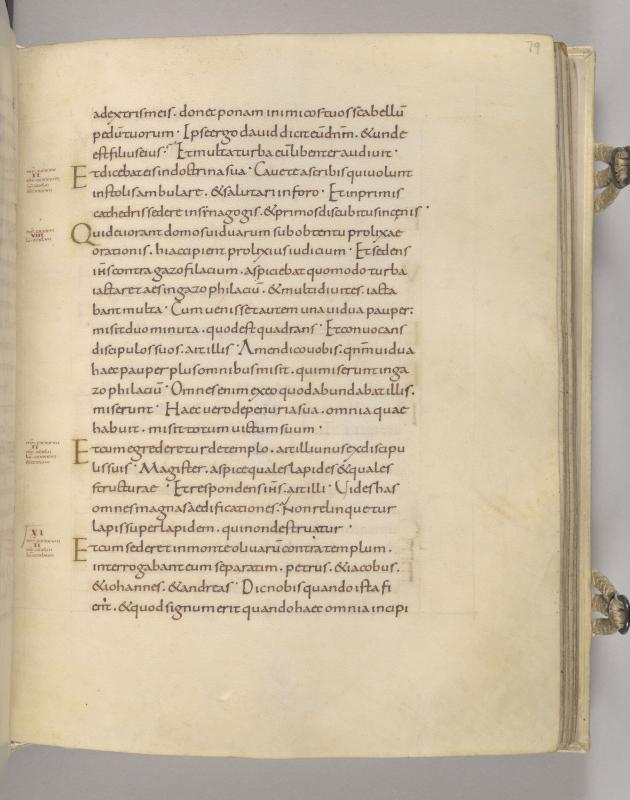 79
adextrismeis. donec ponam inimicostuos scabellū
pedūtuorum· Ipse ergo david dicit eū dn̄m. & unde
est filius eius· Et multa turba eū libenter audivit·
Et dicebat eis in doctrina sua· Cavete a scribis qui volunt
in stolis ambulare. & salutari in foro· Et in primis
cathedris sedere in synagogis. & primos discubitus in cenis·
Qui devorant domos viduarum sub obtentu prolixae
orationis. hi accipient prolixius iudicium· Et sedens
ih̄s contra gazofilacium. aspiciebat quomodo turba
iactaret aes in gazophilaciū. & multi divites. iacta
bant multa· Cum venisset autem una vidua pauper.
misit duo minuta. quod est quadrans· Et convocans
discipulos suos. ait illis· Amen dico vobis. qnm̄ vidua
haec pauper plus omnibus misit. qui miserunt in ga
zophilaciū· Omnes enim ex eo quod abundabat illis.
miserunt· Haec vero de penuria sua. omnia quae
habuit. misit totum victum suum·
Et cum egrederetur de templo. ait illi unus ex discipu
lis suis· Magister. aspice quales lapides & quales
structurae· Et respondens ih̄s. ait illi· Vides has
omnes magnas aedificationes. Non relinquetur
lapis super lapidem. qui non destruatur·
XI
Et cum sederet in monte olivarū contra templum.
interrogabant eum separatim. petrus. & iacobus.
& iohannes. & andreas· Dic nobis quando ista fi
ent. & quod signum erit quando haec omnia incipi